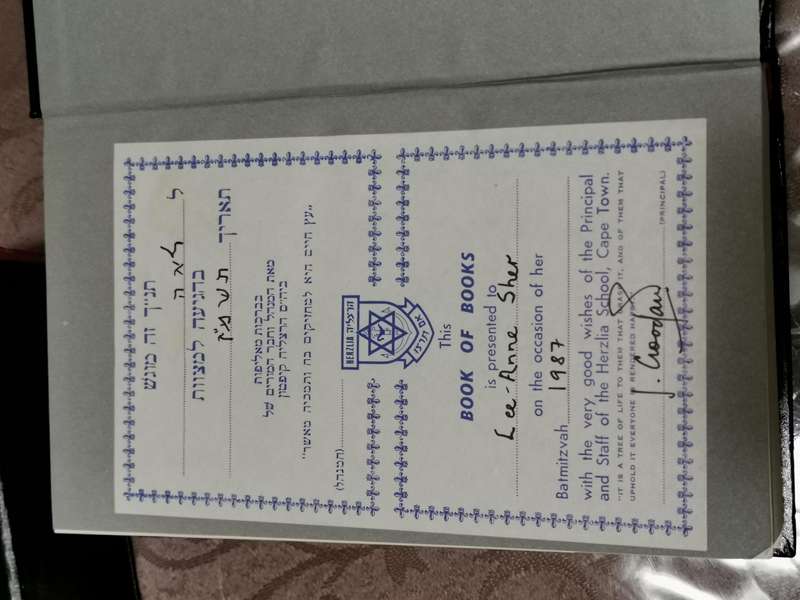 תנ״ך זה מוגש
ל לאה
בהגיעה למצוות
תאריך תשמ״ז
בברכות מאליפות
מאת המנהל וחבר המורים של
ביה״ס הרצליה קיפטון
״עץ חיים היא למחזיקים בה ותמכיה מאשר״
(המנהל)
הרצליה
HERZLIA
אם תרצו
This
BOOK OF BOOKS
is presented to
Lee-Anne Sher
on the occasion of her
Batmitzvah 1987
with the very good wishes of the Principal
and Staff of the Herzlia School, Cape Town.
"IT IS A TREE OF LIFE TO THEM THAT GRASP IT, AND OF THEM THAT
UPHOLD IT EVERYONE IS RENDERED HAPPY"
(PRINCIPAL)